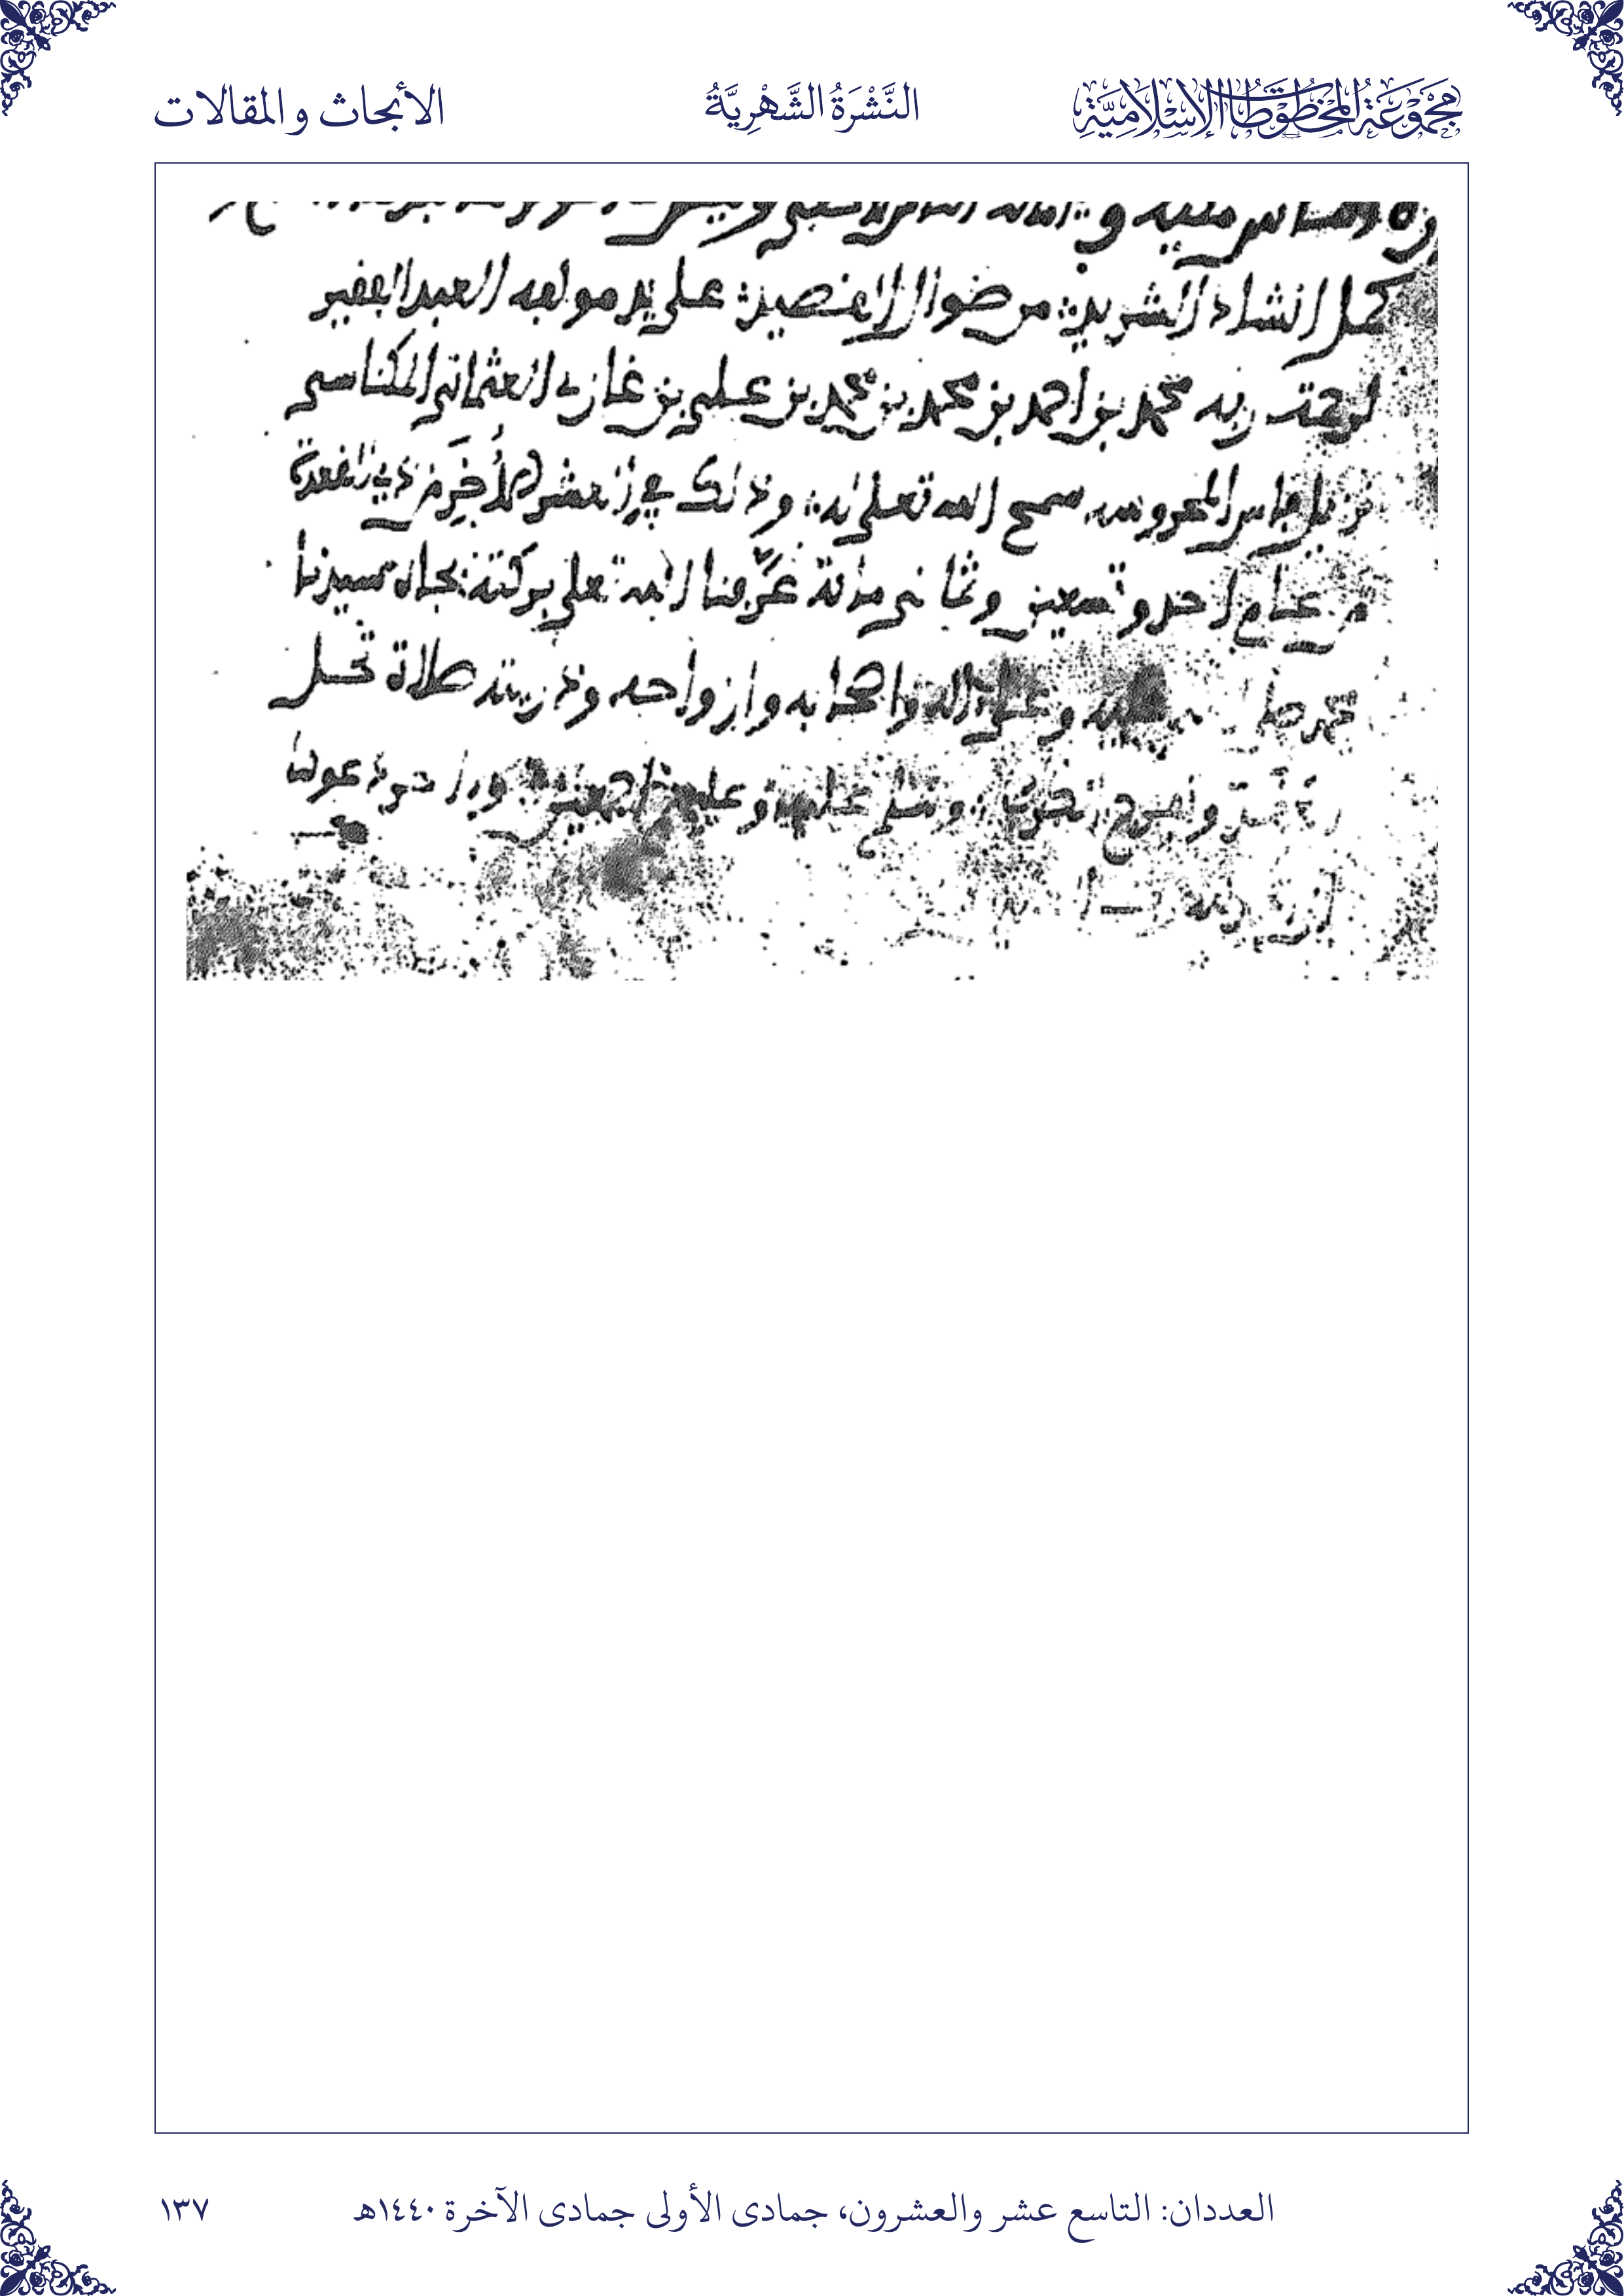 مَجْمُوعَةُ المَخْطُوطَاتِ الإِسْلَامِيَّةِ
النَّشْرَةُ الشَّهْرِيَّةُ
الأبحاث والمقالات
كمل انشاد الشريد من ضوال القصيد على يد مولفه العبد الفقير
لرحمة ربه محمد بن احمد بن محمد بن محمد بن علي بن غازي العثماني المكناسي
بفاس المحروسة سمح الله تعلى له وذلك في العشر الأُخَر من ذي القعدة
من عام احد وتسعين وثماني مائة عَرَّفنا الله تعلى بركته بجاه سيدنا
محمد صلى عليه وعلى اله واصحابه وازواجه وذريته صلاة تحل
وسلم عليه وعليهم اجمعين
العددان: التاسع عشر والعشرون، جمادى الأولى جمادى الآخرة ١٤٤٠هـ
١٣٧